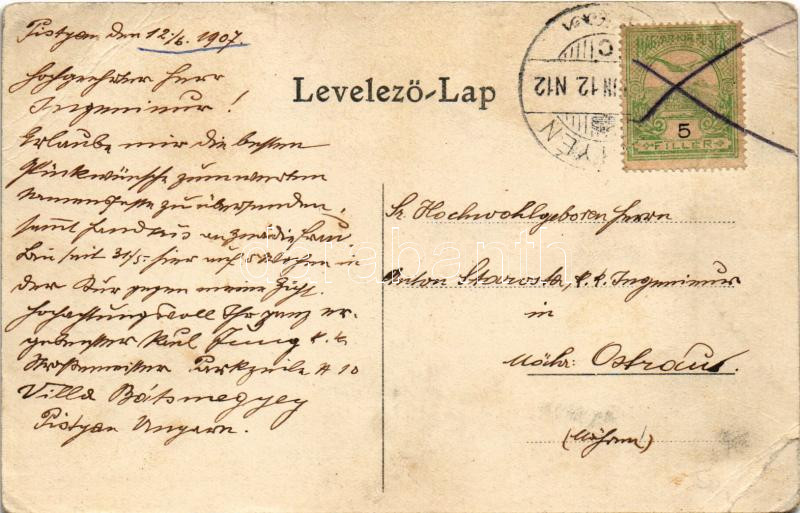 Pistyan den 12./6. 1907.
Hochgeehrter Herr
Ingenieur!
Erlaube mir die besten
Glückwünsche zum werten
Namensfeste zu übersenden,
samt Handkuss an gnädige Frau.
Bin seit 31/5. hier auf 5 Wochen in
der Kur gegen meine Gicht.
Hochachtungsvoll Ihr ganz er-
gebenster Karl Jung k. k.
Strassenmeister. Parkzeile # 10
Villa Bátsmegyey
Pistyan Ungarn.
Levelező-Lap
MAGYAR KIR. POSTA
5
FILLÉR
12 N12
YÉN
Sr. Hochwohlgeboren Herrn
Anton Starosta, k. k. Ingenieur
in
Mähr: Ostrau.
(Mähren)
darabanth